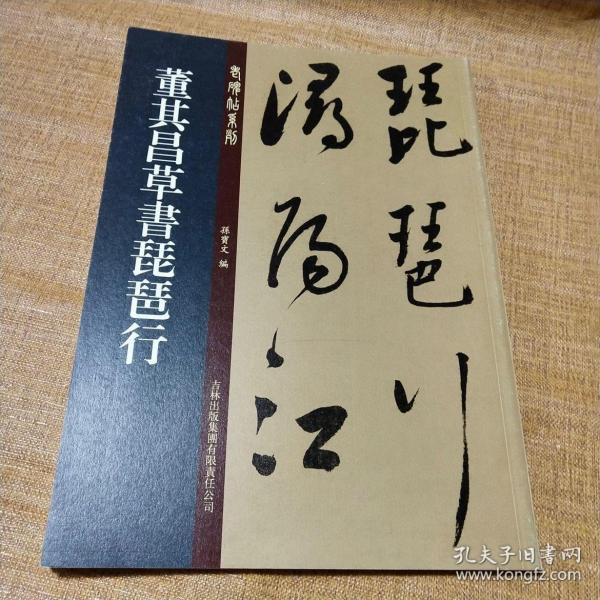 琵琶行
潯陽江
老碑帖系列
孫寶文 編
吉林出版集團有限責任公司
董其昌草書琵琶行
孔夫子旧书网
www.kongfz.com